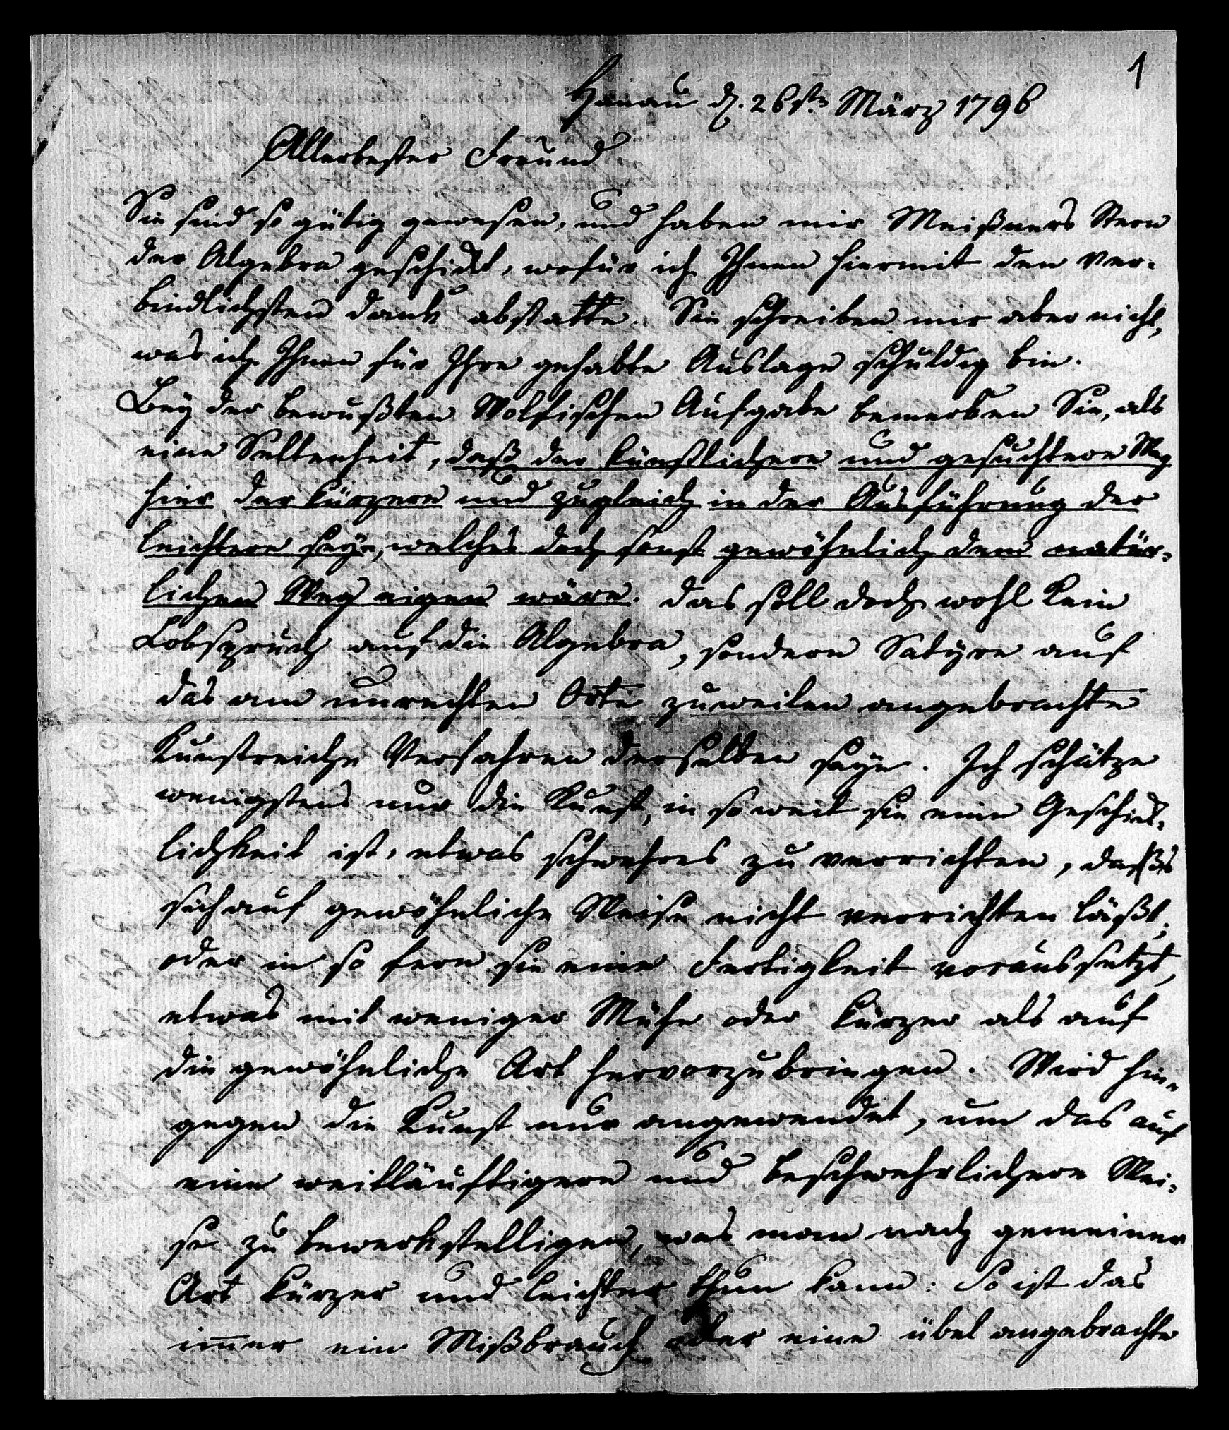 1
Hanau d. 26ten März 1796
Allerbester Freund
Sie sind so gütig gewesen, und haben mir Meißners Stern
der Algebra geschickt, wofür ich Ihnen hiermit den ver-
bindlichsten Dank abstatte. Sie schreiben mir aber nicht,
was ich Ihnen für Ihre gehabte Auslage schuldig bin.
Bey der bewußten Wolfischen Aufgabe bemerken Sie, als
eine Seltenheit, daß der künstlichere und gesuchtere Weg
hier der kürzere und zugleich in der Ausführung der
leichtere seye, welches doch sonst gewöhnlich dem natür-
lichen Weg eigen wäre. Das soll doch wohl kein
Lobspruch auf die Algebra, sondern Satyre auf
das am unrechten Orte zuweilen angebrachte
kunstreiche Verfahren derselben seye. Ich schätze
wenigstens nur die Kunst, in so weit sie eine Geschick-
lichkeit ist, etwas schwehres zu verrichten, das
sich auf gewöhnliche Weise nicht verrichten läßt;
oder in so fern sie eine Fertigkeit voraussetzt,
etwas mit weniger Mühe oder kürzer als auf
die gewöhnliche Art hervorzubringen. Wird hin-
gegen die Kunst nur angewendet, um das auf
eine weitläuftigere und beschwehrlichere Wei-
se zu bewerkstelligen, was man nach gemeiner
Art kürzer und leichter thun kann: So ist das
im̄er ein Mißbrauch oder eine übel angebrachte